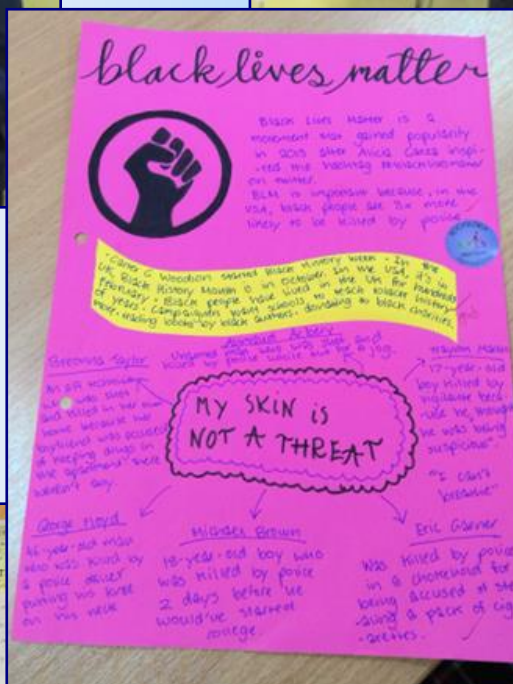 black lives matter
Black Lives Matter is a
movement that gained popularity
in 2013 after Alicia Garza inspi-
-red the hashtag #blacklivesmatter
on twitter.
BLM is important because, in the
USA, black people are 3x more
likely to be killed by police.
· Carter G Woodson started Black History Week · In the
UK Black History Month is in October, in the USA, it's in
February · Black people have lived in the UK for hundreds
of years. Campaigners want schools to teach blacker history
more, reading books by black authors, donating to black charities,
Ahmaud Arbery
Unarmed man who was shot and
killed by while out for a jog.
Breonna Taylor
An ER technician
who was shot
and killed in her own
home because her
boyfriend was accused
of keeping drugs in
the apartment there
weren't any.
MY SKIN iS
NOT A THREAT
Trayvon Martin
17-year-old
boy killed by
vigilante beca-
use he thought
he was being
suspicious"
"I can't
breathe"
George Floyd
46-year-old man
who was killed by
a police officer
putting his knee
on his neck
Michael Brown
18-year-old boy who
was killed by police
2 days before he
would've started
college.
Eric Garner
Was killed by police
in a chokehold for
being accused of ste-
-aling a pack of cig-
-arettes.